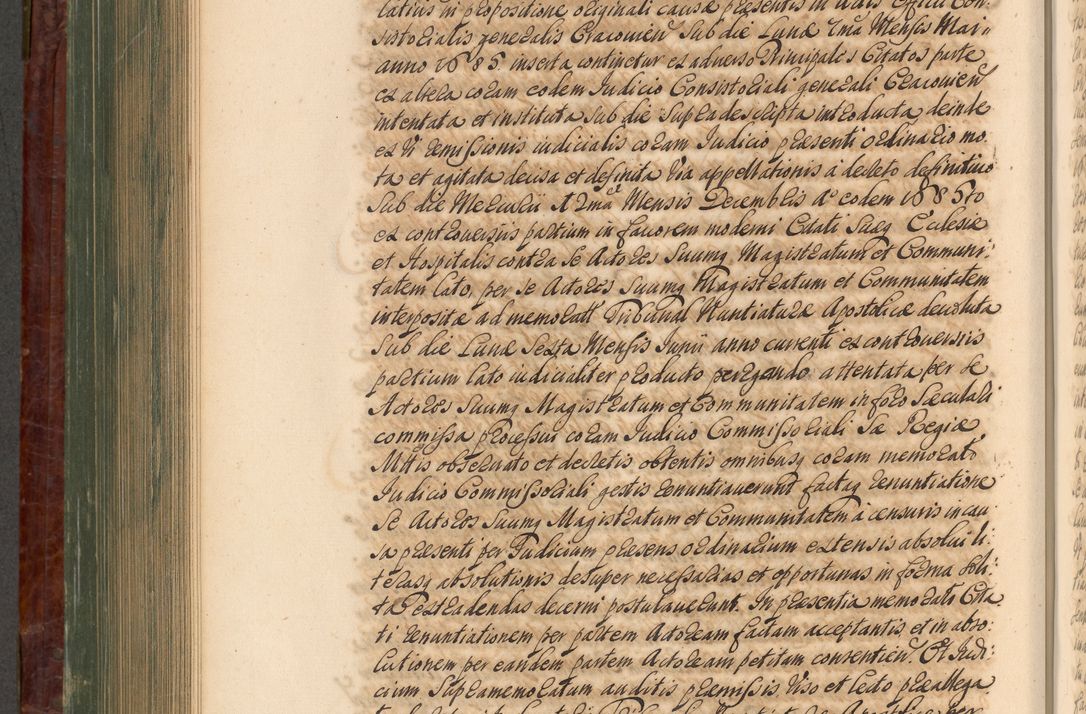 latius in propositione originali causæ præsentis in Actis Officii Con¬
sistorialis generalis Cracovien sub die Lunæ 1ma Mensis Maii
anno 1685 inserta continetur ex adverso Principales Citatos parte
ex altera coram eodem Judicio Consistoriali generali Cracovien
intentata et instituta sub die supra descripta introducta, deinde
ex vi remissionis iudicialis coram Judicio præsenti ordinario mo¬
ta et agitata decisa et definita via appellationis à decreto definitivo
sub die Mercurii 12ma Mensis Decembris Ao eodem 1685to
ex controversiis partium in favorem moderni Citati Suæq Ecclesiæ
et Hospitalis contra se Actores Suumq Magistratum et Communi:
tatem lato, per se Actores Suumq Magistratum et Communitatem
interpositæ ad memoratt Tribunal Nuntiaturæ Apostolicæ devoluta
sub die Lunæ Sexta Mensis Junii anno currenti ex controversiis
partium lato iudicialiter producto peragendo attentata per se
Actores Suumq Magistratum et Communitatem in foro Sæculari
commissa processui coram Judicio Commissoriali Sæ Regiæ
Mttis observato et decretis obtentis omnibusq coram memorato
Judicio Commissoriali gestis renuntiaverunt factaq renuntiatione
se Actores Suumq Magistratum et Communitatem à censuris in cau
sa præsenti per Judicium præsens ordinarium extensis absolui li:
terasq absolutionis desuper necessarias et opportunas in forma soli:
ta extradendas decerni postulaverunt. In præsentia memorati Cita
ti renuntiationem per partem Actoream factam acceptantis, et in abso:
lutionem per eandem partem Actoream petitam consentien. Et Judi:
cium supramemoratum auditis præmissis viso et lecto præallega